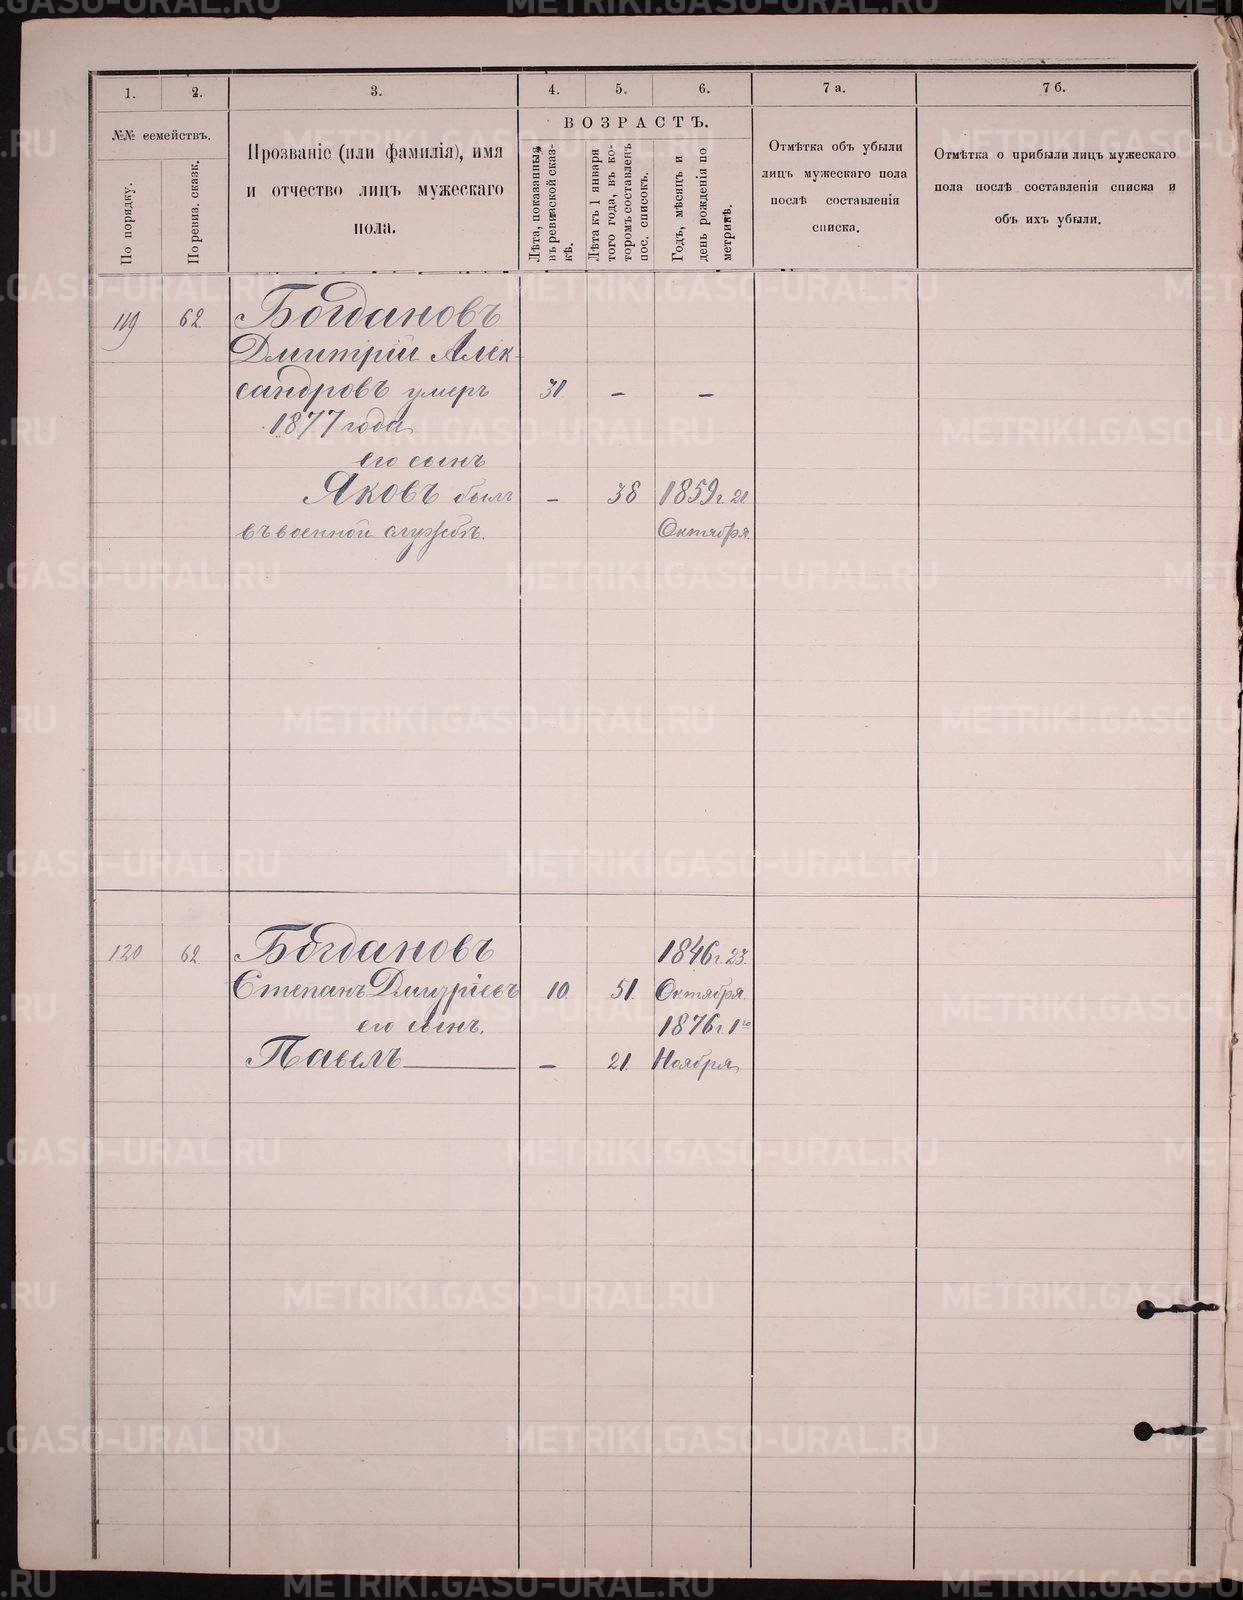 1.
2.
3.
4.
5.
6.
7 а.
7 б.
№№ семействъ.
По порядку.
По ревиз. сказк.
Прозваніе (или фамилія), имя
и отчество лицъ мужескаго
пола.
ВОЗРАСТЪ.
Лѣта, показанныя
въ ревизской сказ-
кѣ.
Лѣта къ 1 января
того года, въ ко-
торомъ составленъ
пос. списокъ.
Годъ, мѣсяцъ и
день рожденія по
метрикѣ.
Отмѣтка объ убыли
лицъ мужескаго пола
послѣ составленія
списка.
Отмѣтка о прибыли лицъ мужескаго
пола послѣ составленія списка и
объ ихъ убыли.
119 62 Богдановъ
Дмитрій Алек-
сандровъ умеръ 31. – –
1877 года
его сынъ
Яковъ былъ – 38 1859 г. 21
въ военной службѣ. Октября.
120 62. Богдановъ 1846 г. 23.
Степанъ Дмитріевъ 10. 51. Октября.
его сынъ. 1876 г. 1го
Павелъ – 21. Ноября
METRIKI.GASO-URAL.RU